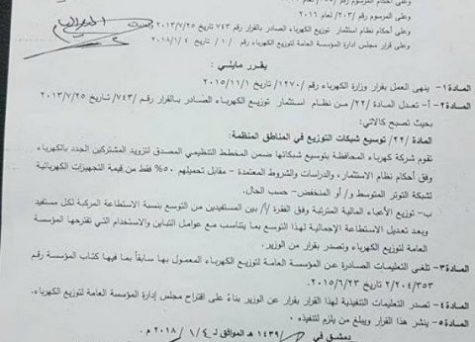 وعلى المرسوم رقم /٢٠٣/ لعام ٢٠١٦
وعلى أحكام نظام استثمار توزيع الكهرباء الصادر بالقرار رقم ٧٤٣ تاريخ ٢٠١٣/٧/٢٥
وعلى قرار مجلس إدارة المؤسسة العامة لتوزيع الكهرباء رقم /١/ تاريخ ٢٠١٨/١/٤
يقـرر مايلـي:
المـادة ١- ينهى العمل بقرار وزارة الكهرباء رقم /١٢٧٠/ تاريخ ٢٠١٥/١١/١
المـادة ٢- أ- تعدل المـادة /٢٢/ من نظـام استثمار توزيـع الكهربـاء الصـادر بـالقرار رقـم /٧٤٣/ تـاريخ ٢٠١٣/٧/٢٥
بحيث تصبح كالآتي:
المـادة /٢٢/ توسيع شبكات التوزيع في المناطق المنظمة:
تقوم شركة كهرباء المحافظة بتوسيع شبكاتها ضمن المخطط التنظيمي المصدق لتزويد المشتركين الجدد بالكهرباء
وفق أحكام نظام الاستثمار، والدراسات والشروط المعتمدة - مقابل تحميلهم ٥٠% فقط من قيمة التجهيزات الكهربائية
لشبكة التوتر المتوسط و/ أو المنخفض- حسب الحال.
ب- توزيع الأعباء المالية المترتبة وفق الفقرة /أ/ بين المستفيدين من التوسع بنسبة الاستطاعة المركبة لكل مستفيد
وبعد تعديل الاستطاعة الإجمالية لهذا التوسع بما يتناسب مع عوامل التباين والاستخدام التي تقترحها المؤسسة
العامة لتوزيع الكهرباء وتصدر بقرار من الوزير.
المـادة ٣- تلغى التعليمات الصادرة عن المؤسسة العامة لتوزيع الكهرباء المعمول بها سابقاً بما فيها كتاب المؤسسة رقم
٢/٢٠٤/٣٥٣ تاريخ ٢٠١٥/٦/٢٣
المـادة ٤- تصدر التعليمات التنفيذية لهذا القرار بقرار عن الوزير بناءً على اقتراح مجلس إدارة المؤسسة العامة لتوزيع الكهرباء.
المـادة ٥- ينشر هذا القرار ويبلغ من يلزم لتنفيذه.
دمشق في / / ١٤٣٩ هـ الموافق لـ ٤ / ١ / ٢٠١٨ م.